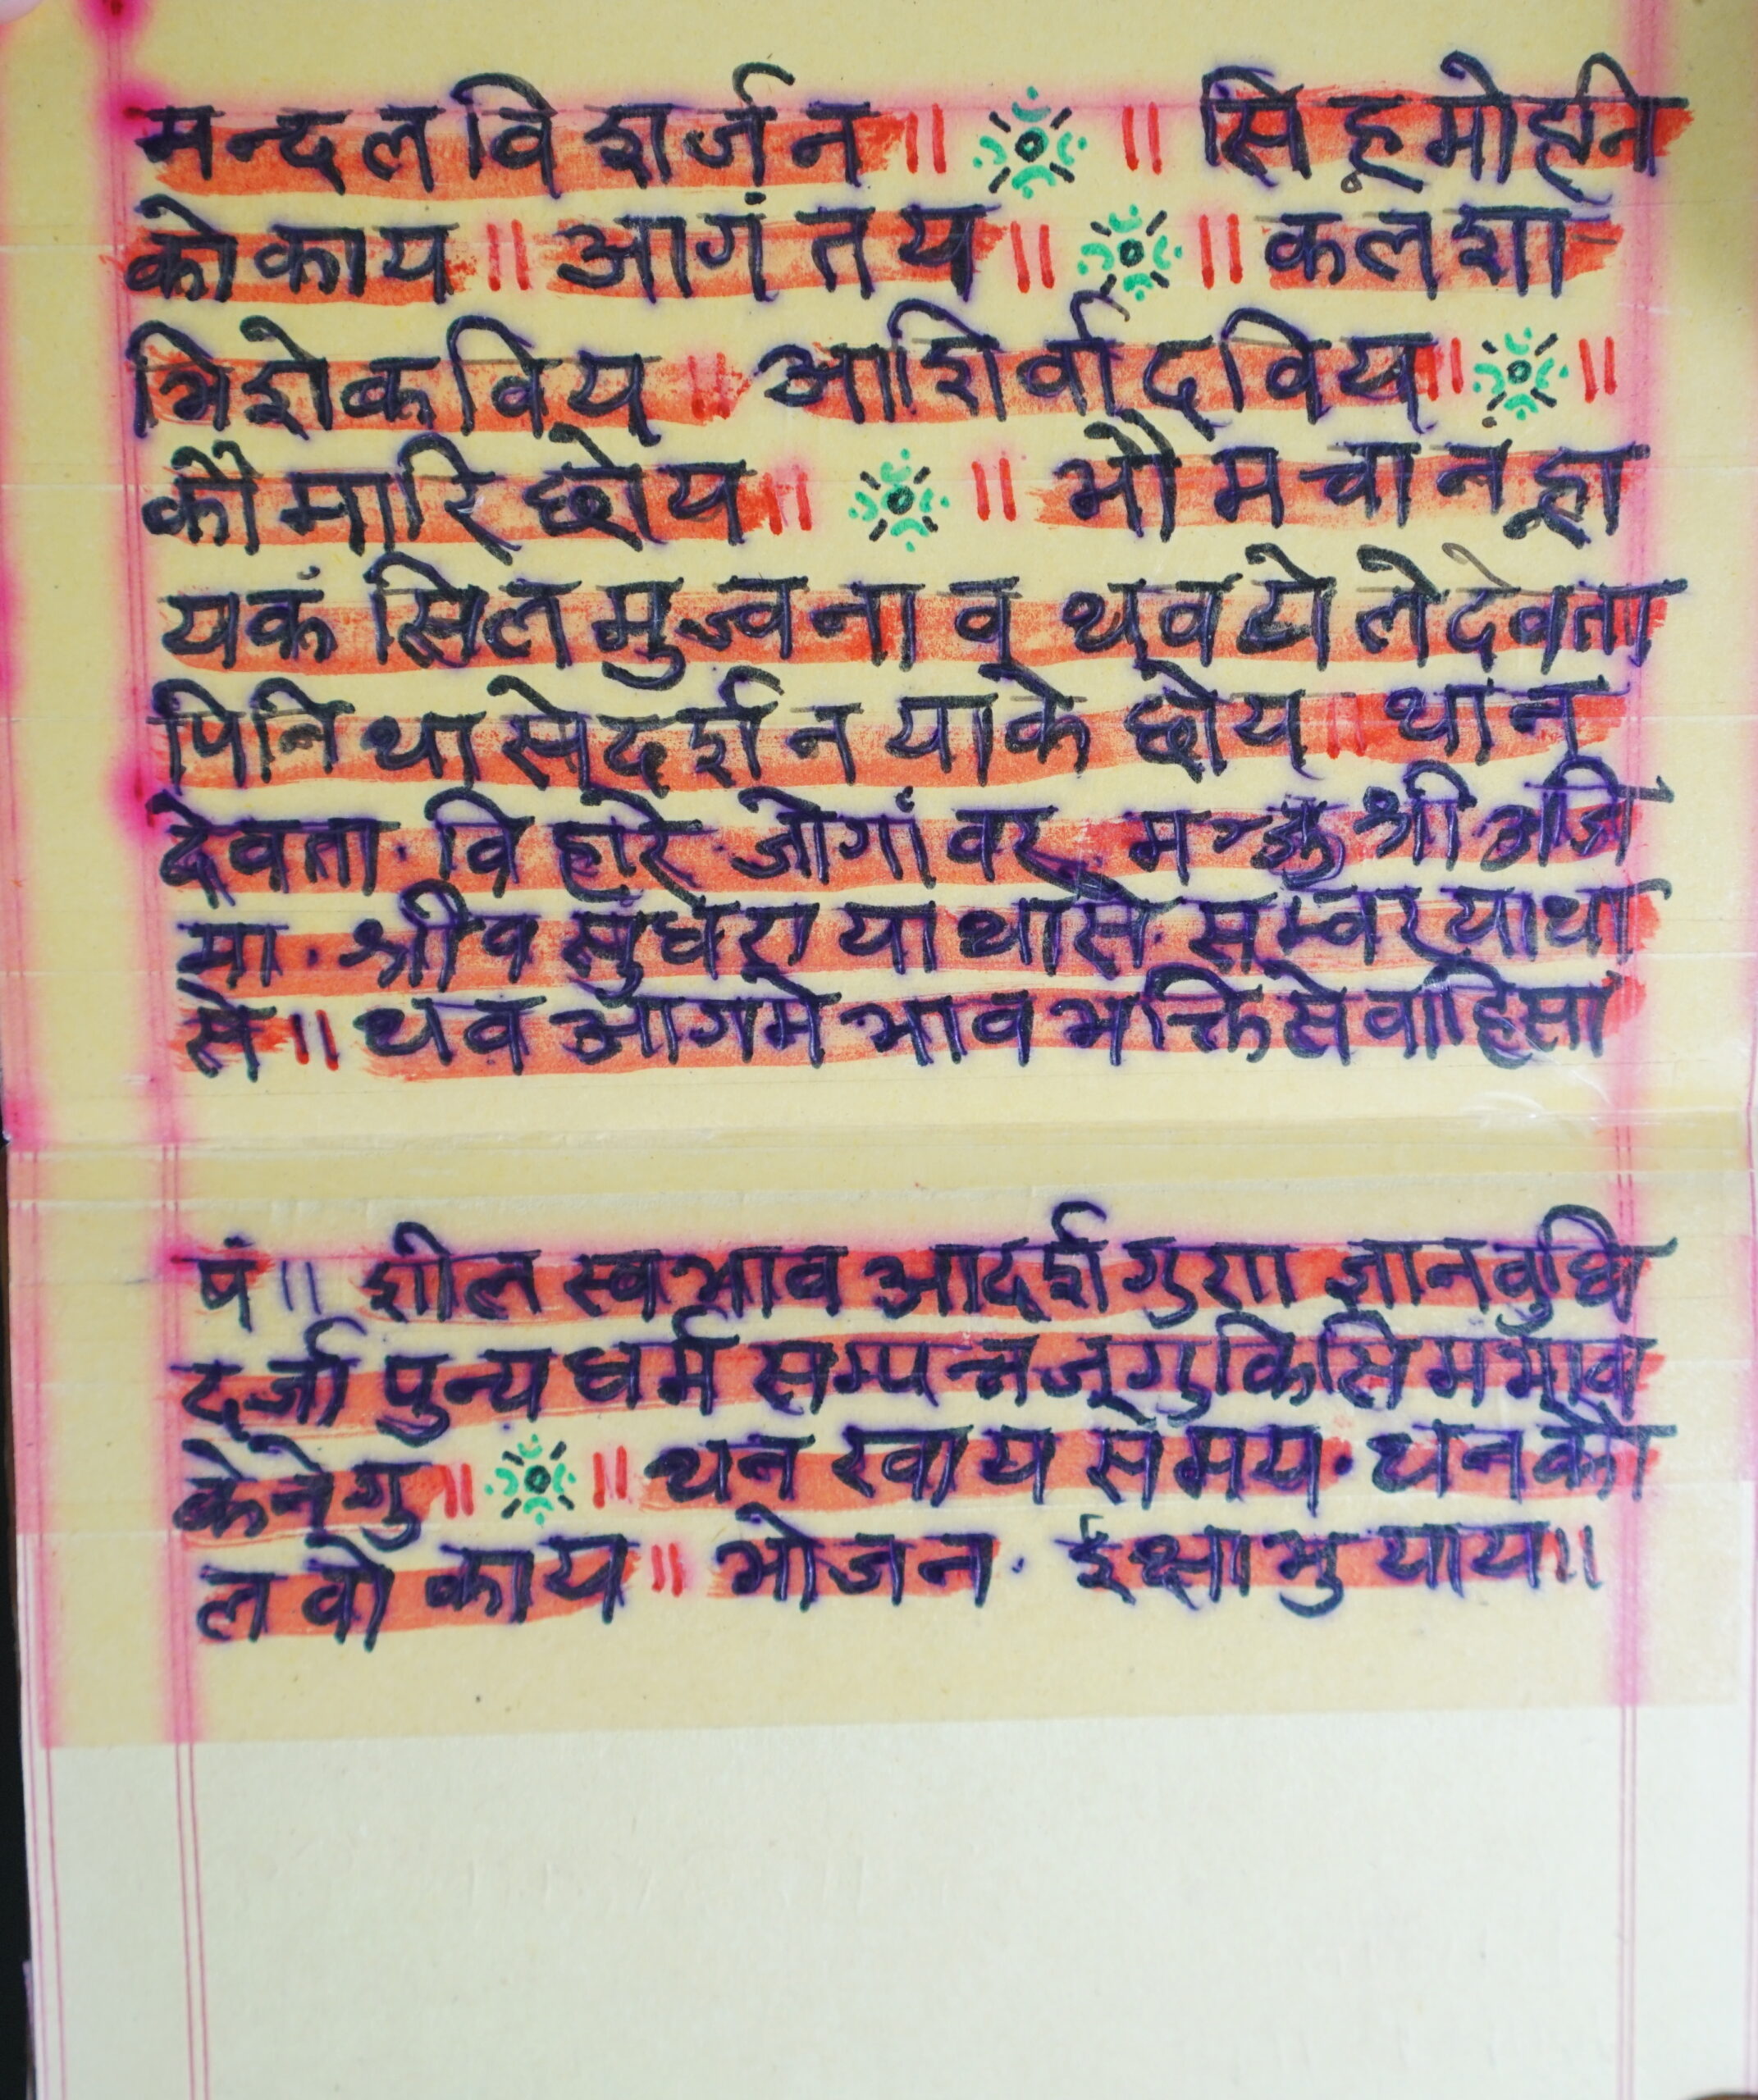 मन्दल विशर्जन ॥ ॥ सिहूमोह्नि
कोकाय ॥ आगंतय ॥ ॥ कलशा
भिशेक विय ॥ आशिर्वाद विय ॥ ॥
कौमारि छोय ॥ ॥ भौमचानं ह्ना
यकं सिलमुज्वना व् थ्वटोले देवता
पिनि थासे दर्शन याके छोय ॥ थान
देवता · विहारे · जोगांवर · मञ्जु श्री अजि
मा · श्रीवसुंधरा या थासे · सम्वर या था
से ॥ थव आगमे भाव भक्ति सेवा हिसा
पं ॥ शील स्वभाव आदर्श गुण ज्ञान वुद्धि
दर्जा पुन्य धर्म सम्पन्नजूगु किसिमं भाव
केनेगु ॥ ॥ थन स्वाय समय · थन कौ
ल वो काय ॥ भोजन · ईक्षाभु याय ॥